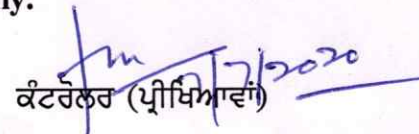 ly.
7/7/2020
ਕੰਟਰੋਲਰ (ਪ੍ਰੀਖਿਆਵਾਂ)